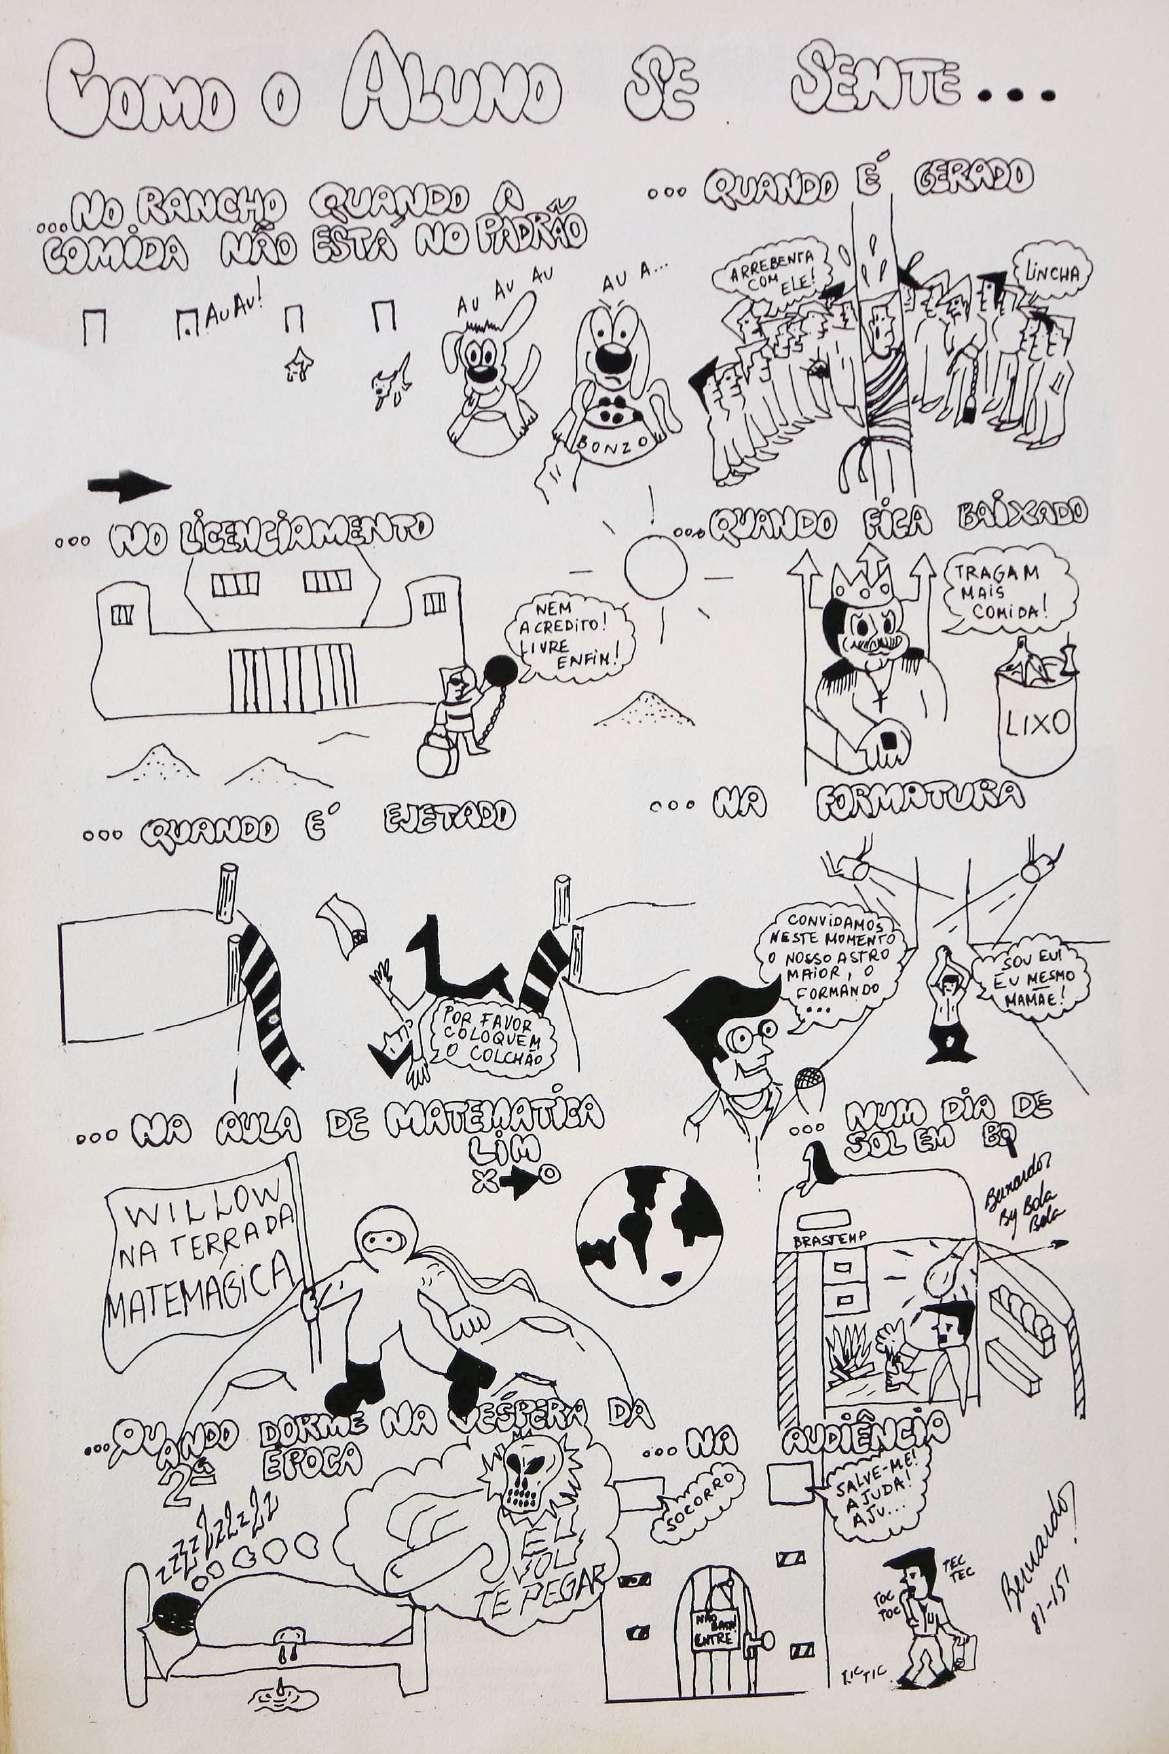 COMO O ALUNO SE SENTE...
...NO RANCHO QUANDO A
COMIDA NÃO ESTÁ NO PADRÃO
AU AU!
AU AU AU
AU A...
BONZO
... QUANDO É GERADO
ARREBENTA
COM ELE!
LINCHA
... NO LICENCIAMENTO
NEM
ACREDITO!
LIVRE
ENFIM!
...QUANDO FICA BAIXADO
TRAGAM
MAIS
COMIDA!
LIXO
... QUANDO É EJETADO
POR FAVOR
COLOQUEM
O COLCHÃO
... NA FORMATURA
CONVIDAMOS
NESTE MOMENTO
O NOSSO ASTRO
MAIOR, O
FORMANDO
...
SOU EU!
EU MESMO
MAMÃE!
... NA AULA DE MATEMATICA
LIM
X→0
WILLOW
NA TERRA DA
MATEMÁGICA
... NUM DIA DE
SOL EM BQ
BRASTEMP
Bernardo
By Bola
Bola
...QUANDO DORME NA VÉSPERA DA
2ª ÉPOCA
ZZZZZZZZZ
EU
VOU
TE PEGAR
... NA AUDIÊNCIA
SOCORRO
SALVE-ME!
AJUDA!
AJU...
NÃO BATA
ENTRE
TEC
TEC
TOC
TOC
TIC TIC
Bernardo
87-151